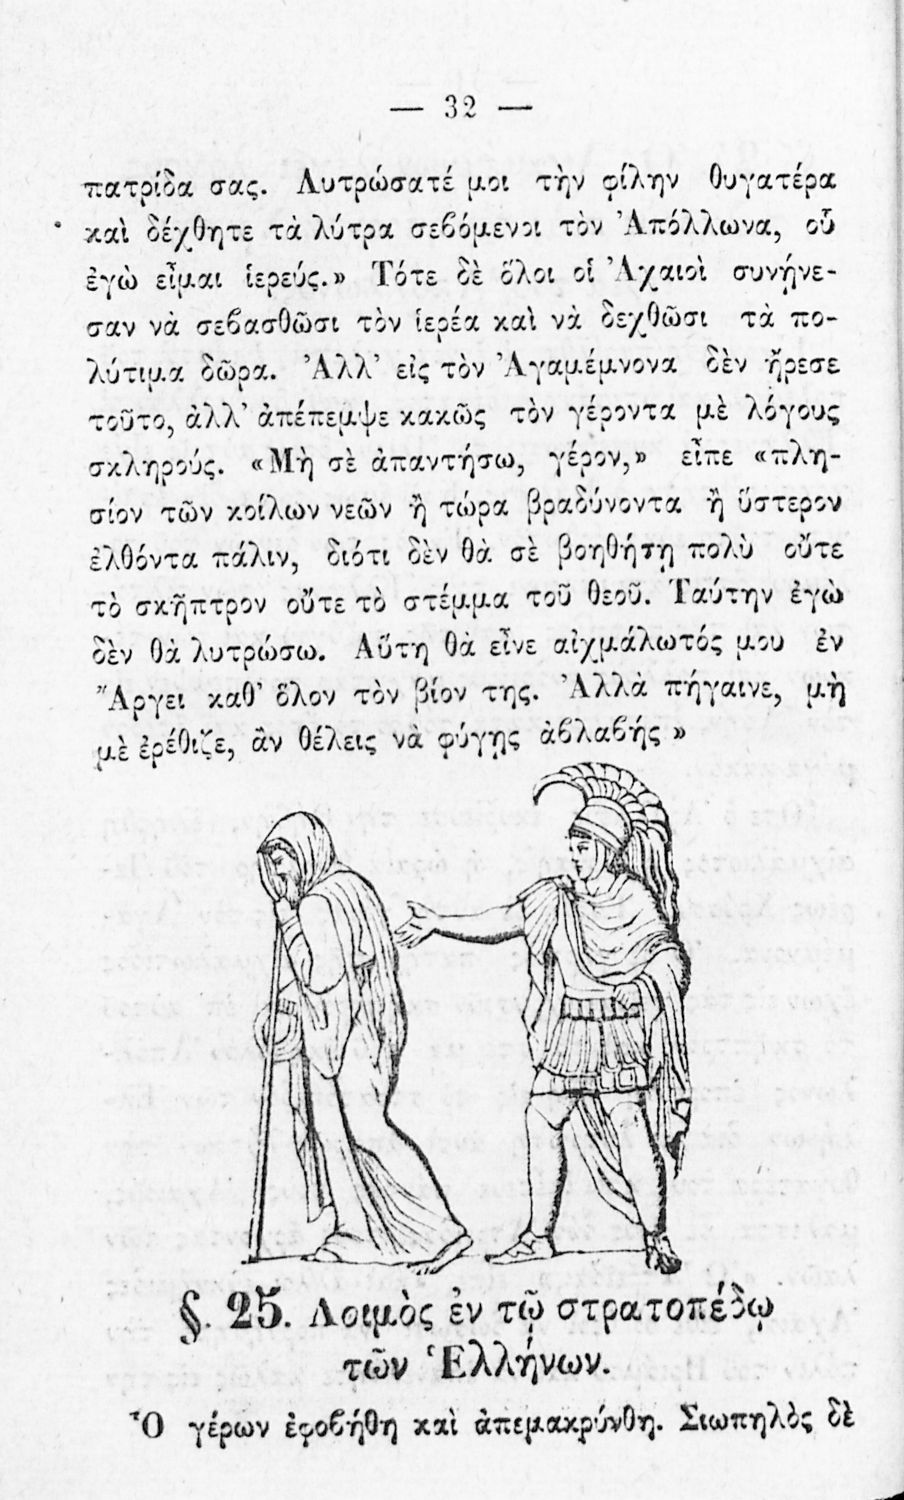 — 32 —
πατρίδα σας. Λυτρώσατέ μοι τὴν φίλην θυγατέρα
καὶ δέχθητε τὰ λύτρα σεβόμενοι τὸν Ἀπόλλωνα, οὗ
ἐγὼ εἶμαι ἱερεύς.» Τότε δὲ ὅλοι οἱ Ἀχαιοὶ συνήνε-
σαν νὰ σεβασθῶσι τὸν ἱερέα καὶ νὰ δεχθῶσι τὰ πο-
λύτιμα δῶρα. Ἀλλ' εἰς τὸν Ἀγαμέμνονα δὲν ἤρεσε
τοῦτο, ἀλλ' ἀπέπεμψε κακῶς τὸν γέροντα μὲ λόγους
σκληρούς. «Μὴ σὲ ἀπαντήσω, γέρον,» εἶπε «πλη-
σίον τῶν κοίλων νεῶν ἢ τώρα βραδύνοντα ἢ ὕστερον
ἐλθόντα πάλιν, διότι δὲν θὰ σὲ βοηθήσῃ πολὺ οὔτε
τὸ σκῆπτρον οὔτε τὸ στέμμα τοῦ θεοῦ. Ταύτην ἐγὼ
δὲν θὰ λυτρώσω. Αὕτη θὰ εἶνε αἰχμάλωτός μου ἐν
Ἄργει καθ' ὅλον τὸν βίον της. Ἀλλὰ πήγαινε, μὴ
μὲ ἐρέθιζε, ἂν θέλεις νὰ φύγῃς ἀβλαβής »
§. 25. Λοιμὸς ἐν τῷ στρατοπέδῳ
τῶν Ἑλλήνων.
Ὁ γέρων ἐφοβήθη καὶ ἀπεμακρύνθη. Σιωπηλὸς δὲ